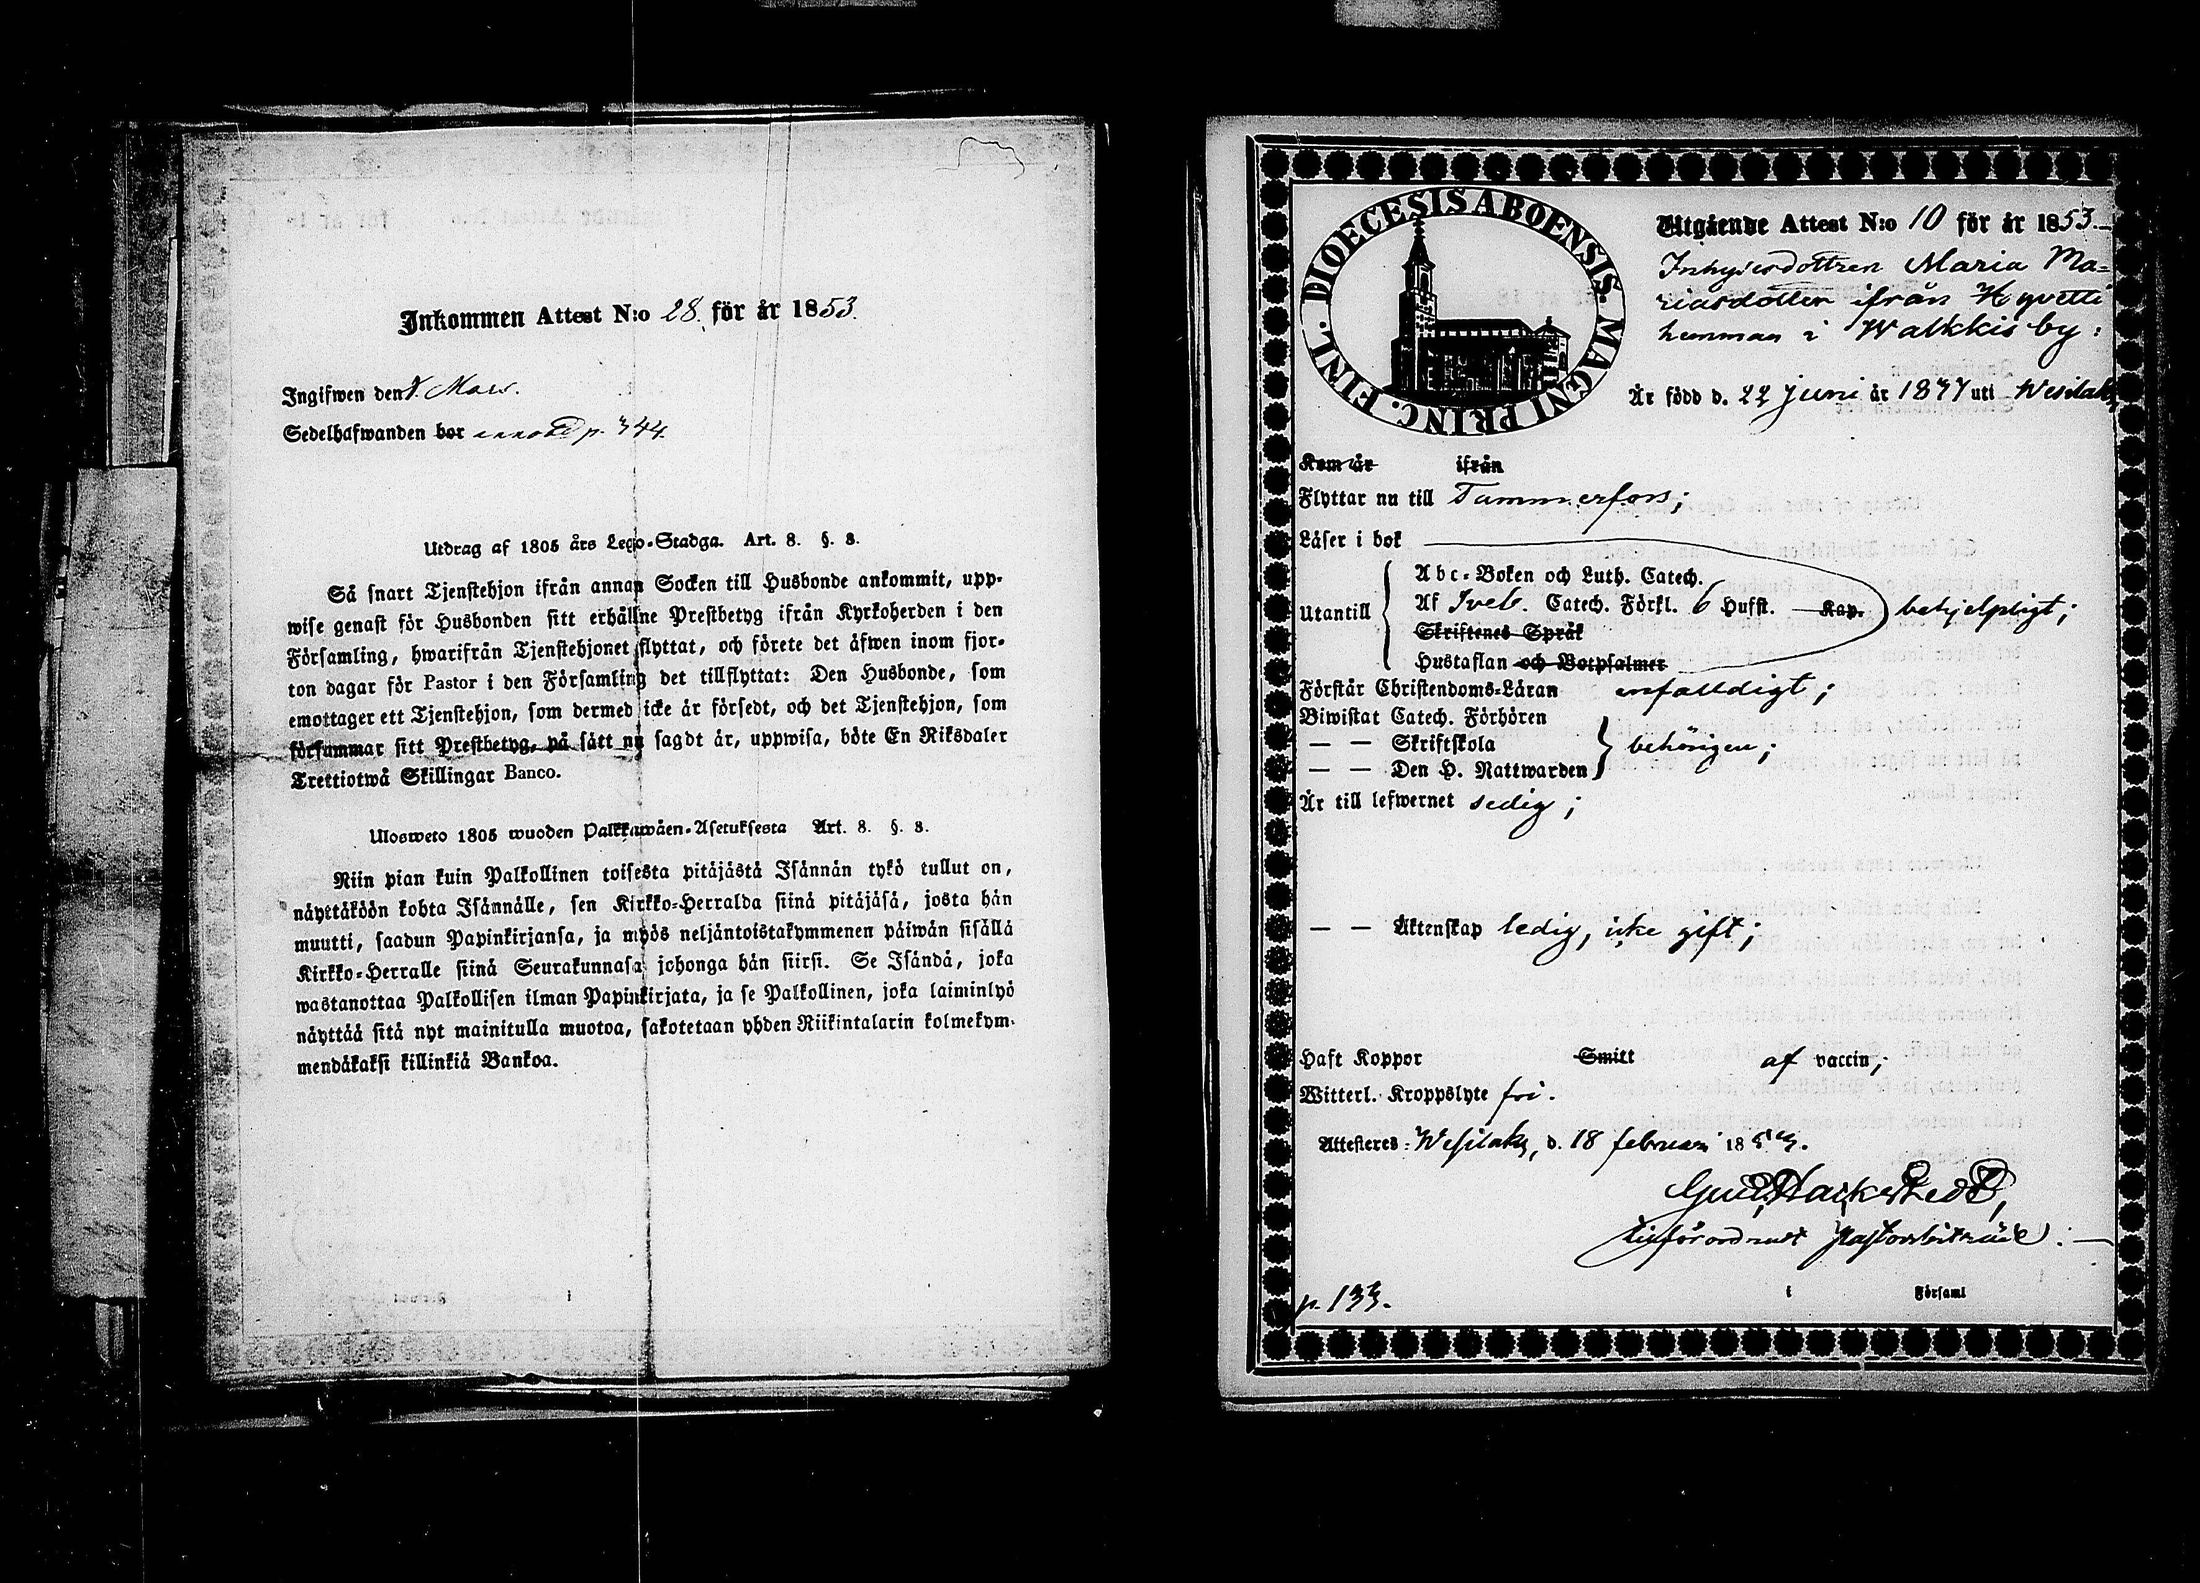 Inkommen Attest N:o 28. för år 1853.
Ingifwen den Mars.
Sedelhafwanden bor p. 344.
Utdrag af 1805 års Lego-Stadga. Art. 8. §. 8.
Så snart Tjenstehjon ifrån annan Socken till Husbonde ankommit, upp-
wise genast för Husbonden sitt erhållne Prestbetyg ifrån Kyrkoherden i den
Församling, hwarifrån Tjenstehjonet flyttat, och förete det äfwen inom fjor-
ton dagar för Pastor i den Församling det tillflyttat: Den Husbonde, som
emottager ett Tjenstehjon, som dermed icke är försedt, och det Tjenstehjon, som
försummar sitt Prestbetyg, på sätt nu sagdt är, uppwisa, böte En Riksdaler
Trettiotwå Skillingar Banco.
Ulosweto 1805 wuoden Palkkawäen-Asetuksesta Art. 8. §. 8.
Niin pian kuin Palkollinen toisesta pitäjästä Isännän tykö tullut on,
näyttäköön kohta Isännälle, sen Kirkko-Herralda siinä pitäjäsä, josta hän
muutti, saadun Papinkirjansa, ja myös neljäntoistakymmenen päiwän sisällä
Kirkko-Herralle siinä Seurakunnasa johonga hän siirsi. Se Isändä, joka
wastanottaa Palkollisen ilman Papinkirjata, ja se Palkollinen, joka laiminlyö
näyttää sitä nyt mainitulla muotoa, sakotetaan yhden Riikintalarin kolmekym-
mendäkaksi killinkiä Bankoa.
DIOECESIS ABOENSIS. MAGNI PRINC. FINL.
Utgående Attest N:o 10 för år 1853.
Inhysesdottren Maria Ma-
riasdotter ifrån Hyvetti
hemman i Walkkis by:
Är född d. 22 Juni år uti Wesilaks,
Kom år ifrån
Flyttar nu till Tammerfors;
Läser i bok
Abc-Boken och Luth. Catech.
Utantill Af Sveb. Catech. Förkl. 6 Hufst. Kap. behjelpligt;
Skriftenes Språk
Hustaflan och Botpsalmer
Förstår Christendoms-Läran enfalldigt;
Biwistat Catech. Förhören
— — Skriftskola behörigen;
— — Den H. Nattwarden
Är till lefwernet sedig;
— — Äktenskap ledig, icke gift;
Haft Koppor Smitt af vaccin;
Witterl. Kroppslyte fri.
Attesteres: Wesilaks, d. 18 februari 1853.
Gust. Hackstedt,
tillförordnadt Pastorsbiträde:
p. 133. i Församl